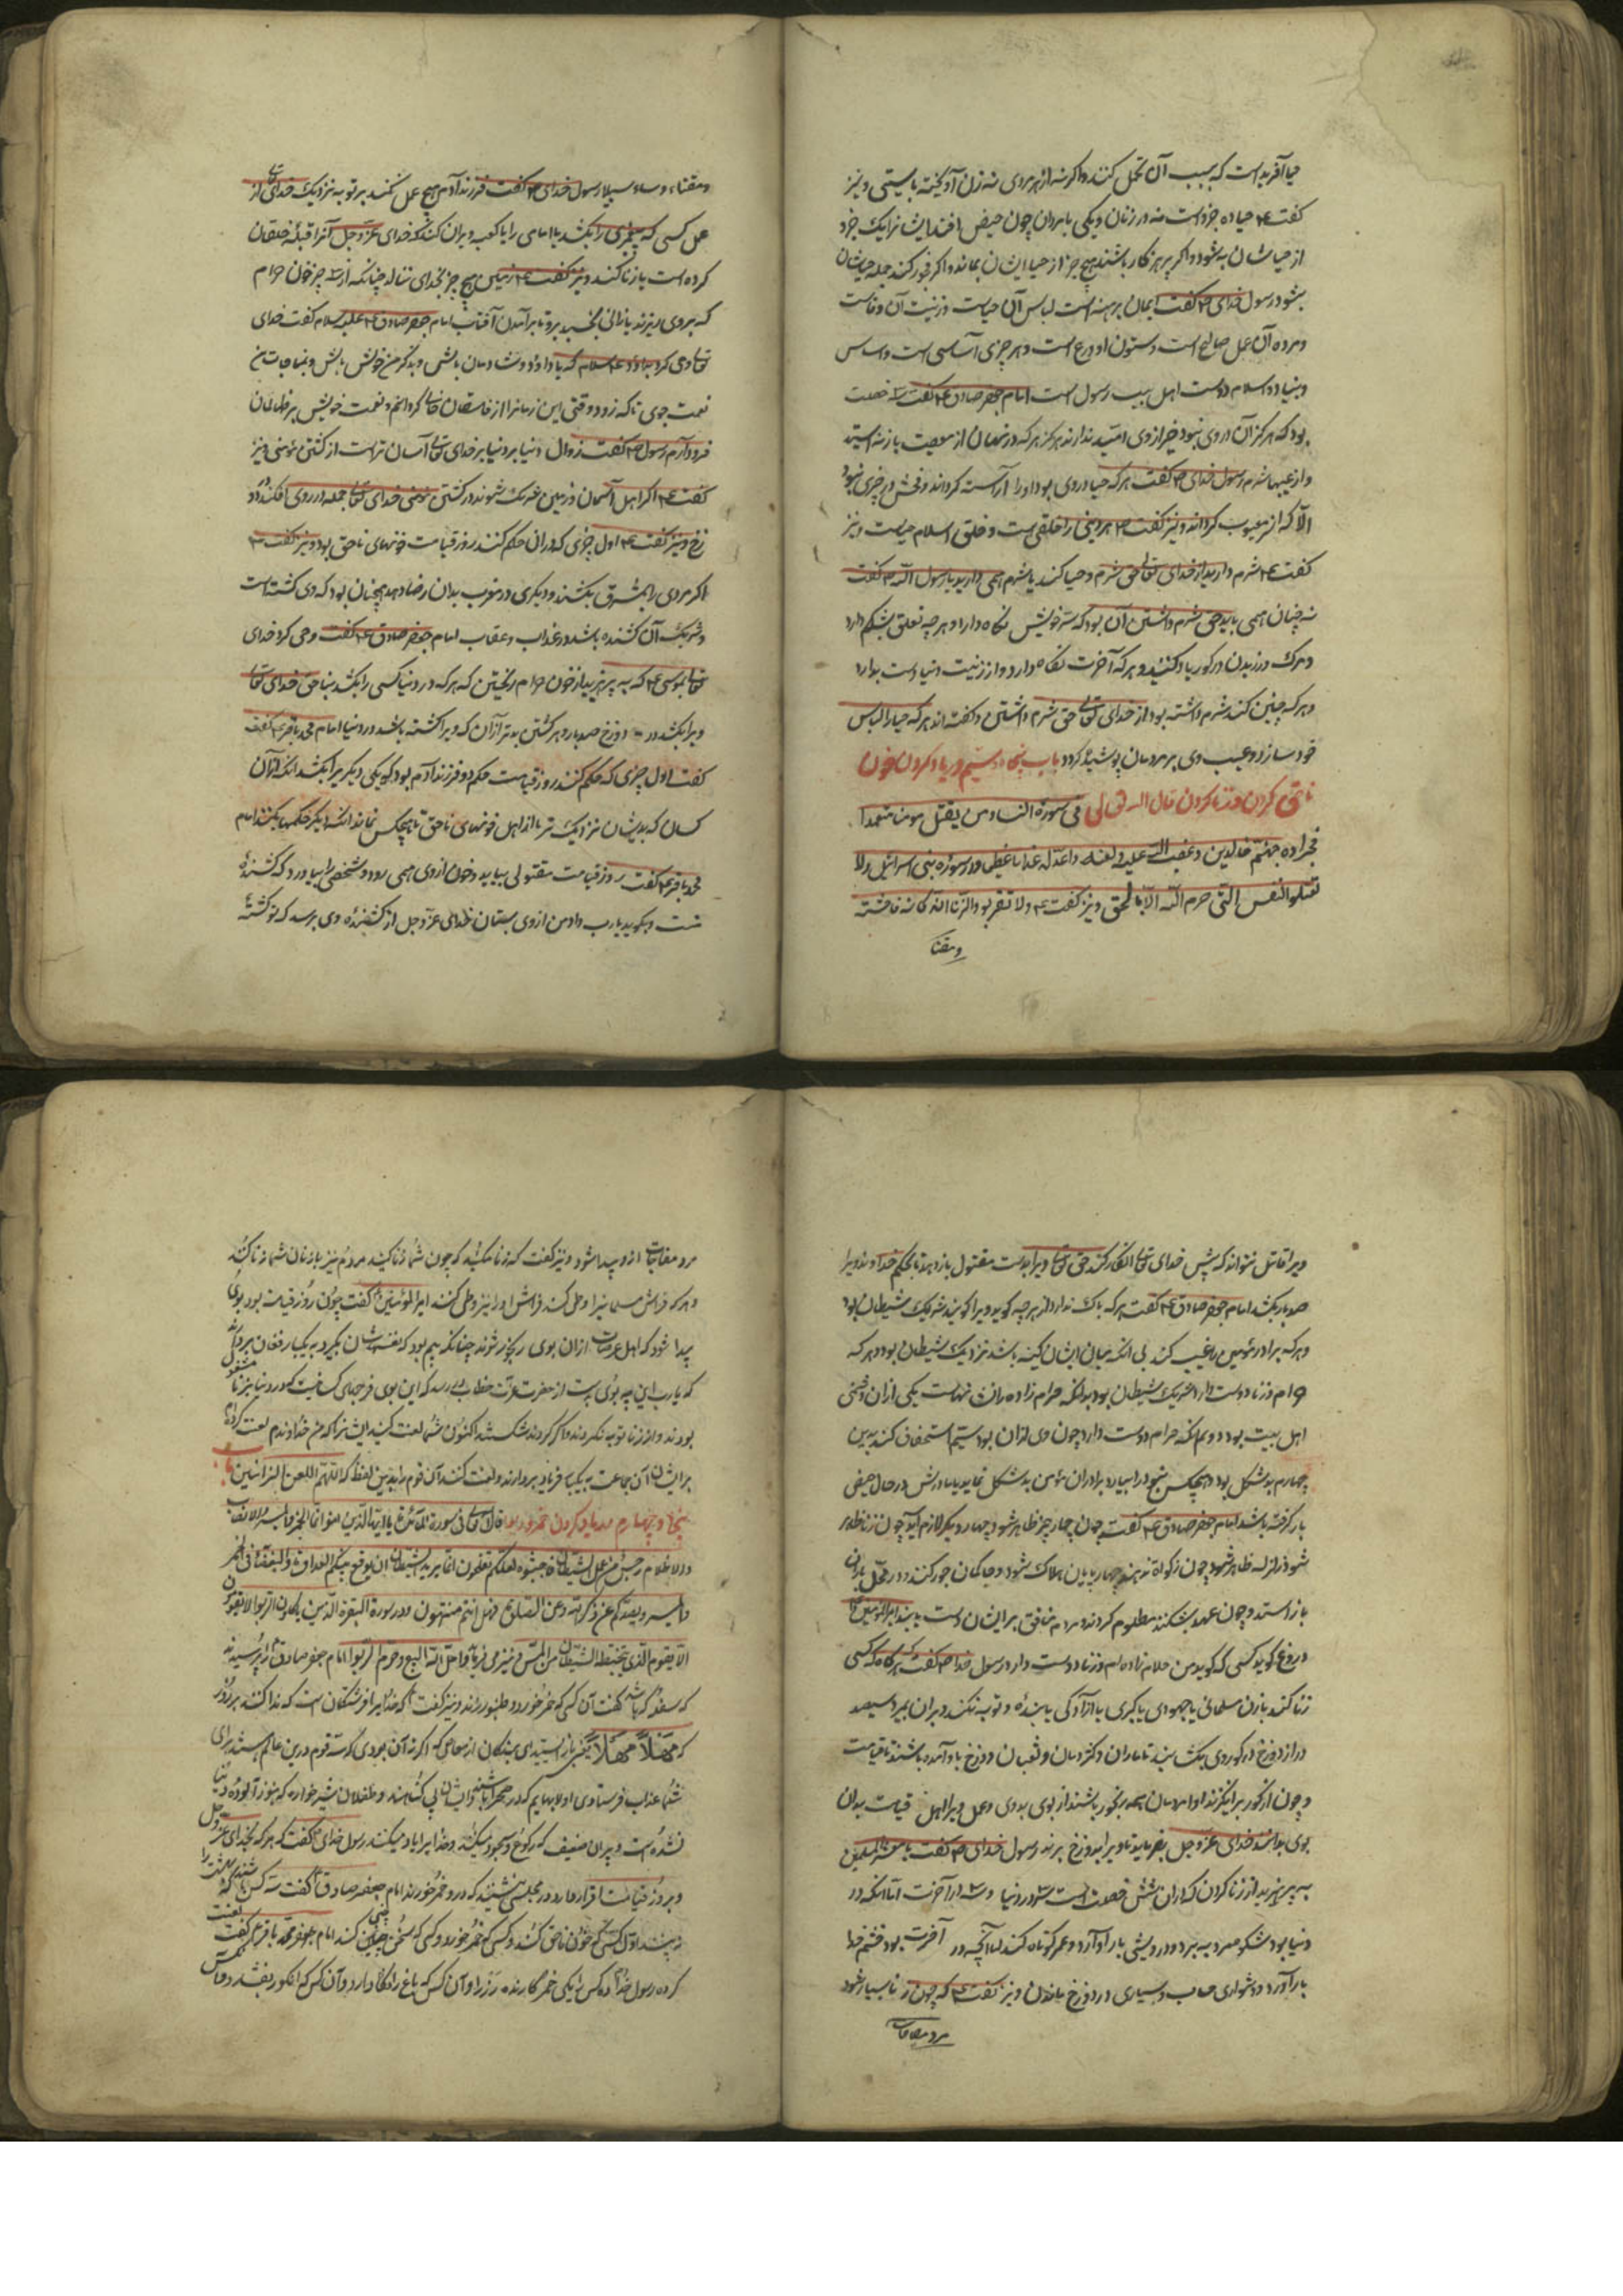 حیا آفریده است که بسبب آن تحمل کنند و اکر نه از هر مردی نه زن آویخته بایستی و نیز
کفت ع م حیا ده جزو است نه در زنان و یکی با مردان چون حیض افتد ایشانرا یک جزو
از حیاشان بشود و اکر پرهیزکار باشند هیچ جز از حیا ایشان بماند و اکر فجور کنند جمله حیاشان
بشود رسول خدای ص م کفت ایمان برهنه است لباس آن حیاست و زینت آن وفاست
و مروه آن عمل صالح است و ستون او ورع است و هر چیزی آساسی است و اساس
و بنیاد اسلام دوست اهل بیت رسول است امام جعفر صادق ع م کفت سه خصلت
بود که هرکز آن در وی نبود خیر از وی امید ندارند هرکز هر که در نهان از معصیت باز نه استید
و از عیبها شرم رسول خدای ص م کفت هر که حیا در وی بود او را آراسته کرداند و فحش در چیزی نبود
الا که از معیوب کرداند و نیز کفت ص م هر دینی را خلقی است و خلق اسلام حیاست و نیز
کفت ع م شرم دارید از خدای تعالی حق شرم و حیا کنند یا شرم همی داریم یا رسول الله ص م کفت
نه چنان همی باید حق شرم داشتن آن بود که سر خویش نکاه دارد و هر چه تعلق بشکم دارد
و مرک و رزیدن در کور یاد کنند و هر که آخرت نکاه دارد و از زینت دنیا دست بدارد
و هر که چنین کند شرم داشته بود از خدای تعالی حق شرم داشتن و کفته اند هر که حیا را لباس
خود سازد و عیب وی بر مردمان پوشیده کردد باب پنجاه و سیم در یاد کردن خون
ناحق کردن و زنا کردن قال الله تعالی فی سورة النساء و من یقتل مومنا متعمدا
فجزاوه جهنم خالدین و غضب الله علیه و لعنه و اعد له عذابا عظیما و در سوره بنی اسرائیل و لا
تقتلوا النفس التی حرم الله الا بالحق و نیز کفت ع م و لا تقربوا الزنا انه کانه فاحشته
و مقتا
و مقتا و ساء سبیلا رسول خدای ص م کفت فرزند آدم هیچ عمل نکند بر تو به نزدیک خدای تعالی از
عمل کسی که پیغمبری را بکشد یا امامی را یا کعبه ویران کند که خدای عز و جل آنرا قبله خلقان
کرده است یا زنا کند و نیز کفت ع م زمین هیچ چیز بخدای ننالد چنانکه از سه چیز خون حرام
که بر وی ریزند یا زانی بخسبد بر وی تا برآمدن آفتاب امام جعفر صادق ع م علیه السلام کفت خدای
تعالی وحی کرد بداود ع م که یا داود شادمان باش و بذکر من خوش باش و بمناجات من
نعمت جوی تا که زود وقتی این زمانرا از فاسقان خالی کردانم و نعمت خویش بر ظالمان
فرود آرم رسول ص م کفت زوال دنیا بر خدای تعالی آسان تر است از کشتن مومنی و نیز
کفت ع م اکر اهل آسمان و زمین شریک شوند در کشتن مومنی خدای تعالی جمله در روی افکند در دو
زخ و نیز کفت ع م اول چیزی که در ان حکم کنند روز قیامت خونهای ناحق بود و نیز کفت ص
اکر مردی را بمشرق بکشند و دیکری در مغرب بدان رضا دهد همچنان بود که وی کشته است
و شریک آن کشنده باشد در عذاب و عقاب امام جعفر صادق ع م کفت وحی کرد خدای
تعالی بموسی ع م که بپرهیزید از خون حرام ریختن که هر که در دنیا کسی را بکشد بناحق خدای تعالی
ویرا بکشد در دوزخ صد بار و هر کشتن بدتر از آن که ویرا کشته باشد در دنیا امام محمد باقر ع م کفت
کفت اول چیزی که حکم کنند روز قیامت حکم دو فرزند آدم بود که یکی دیکر را بکشد انکه از آن
کسان که بدیشان نزدیک تر باشد اهل خونهای ناحق تا هیچکس نماند انکه دیکر حکمها بکنند امام
محمد باقر ع م کفت روز قیامت مقتولی بیاید و خون از وی همی رود و شخصی را بیاورد که کشنده
است و بکوید یارب داد من از وی بستان خدای عز و جل از کشنده وی پرسد که تو کشته
ویرا قاتل نتواند که پیش خدای تعالی انکار کند حق تعالی ویرا بدست مقتول باز دهد تا بحکم خداوند ویرا
صد بار بکشد امام جعفر صادق ع م کفت هر که باک ندارد از هر چه کوید و ویرا کویند شریک شیطان بود
و هر که برادر مومن را غیبت کند بی انکه میان ایشان کینه باشد نزدیک شیطان بود و هر که
حرام و زنا دوست دارد شریک شیطان بود بدانکه حرام زاده را نشانهاست یکی ازان دشمنی
اهل بیت بود دوم انکه حرام دوست دارد چون وی ازان بود سیم استخفاف کند بدین
چهارم بدشکل بود و هیچکس نبود در ابیا برادران مومن بدشکل نماید یا مادرش در حال حیض
بار کرفته باشد امام جعفر صادق ع م کفت چون چهار چیز ظاهر شود چهار دیکر لازم آید چون زنا ظاهر
شود زلزله ظاهر شود چون زکوة ندهند چهار پایان هلاک شود و حاکمان جور کنند در محل باران
باز استد و چون عهد بشکنند مظلوم کردند و مردم منافق بر ایشان دست یابند امیر المؤمنین ع
دروغ کوید کسی که کوید من حلام زاده ام و زنا دوست دارد رسول خدا ص م کفت هر کاه که کسی
زنا کند با زن مسلمانی یا جهودی یا کبری یا آزادکی یا بنده و توبه نکند و بران بمیرد سیصد
در از دوزخ در کور وی بکشایند تا ماران و کژدمان و ثعبان دوزخ با و آمده باشند تا قیامت
و چون از کور برانکیزند او را مردمان همه رنجور باشند از بوی بد وی و عمل ویرا اهل قیامت بدان
بوی بدانند خدای عز و جل بفرماید تا ویرا بدوزخ برند رسول خدای ص م کفت یا معشر المسلمین
بپرهیزید از زنا کردن که در ان شش خصلت است سه در دنیا و سه در آخرت اما انکه در
دنیا بود شکوه مرد ببرد و درویشی بار آورد و عمر کوتاه کند اما آنچه در آخرت بود خشم خدا
بار آورد و دشواری حساب و بسیاری در دوزخ ماندن و نیز کفت ع م که چون زنا بسیار شود
مرد مفاجات
مرد مفاجات ازو پیدا شود و نیز کفت که زنا مکنید که چون شما زنا کنید مردم نیز با زنان شما زنا کنند
و هر که فراش مسلمانیرا وطی کند فراش او را نیز وطی کنند امیر المؤمنین کفت چون روز قیامت بود بوی
پیدا شود که اهل عرصات ازان بوی رنجور شوند چنانکه بیم بود که نفسشان بکیرد به یکبار فغان بردارند
که یارب این چه بوی است از حضرت عزت خطاب رسد که این بوی فرجهای کسانیست که در دنیا بزنا مشغول
بودند و از زنا توبه نکردند و اکر کردند شکستند اکنون شما لعنت کنید ایشانرا که من خداوندم لعنت کردم
بر ایشان آن جماعت به یکبار فریاد بردارند و لعنت کنند آن قوم را بدین لفظ که اللهم العن الزانین باب
پنجاه و چهارم در یاد کردن خمر و ربوا قال الله تعالی فی سورة المائدة یا ایها الذین امنوا انما الخمر و المیسر و الانصاب
و الازلام رجس من عمل الشیطان فاجتنبوه لعلکم تفلحون انما یرید الشیطان ان یوقع بینکم العداوة و البغضاء فی الخمر
و المیسر و یصدکم عن ذکر الله و عن الصلوة فهل انتم منتهون و در سورة البقرة الذین یاکلون الربوا لا یقومون
الا یقوم الذی یتخبطه الشیطان من المس و نیز می فرماید و احل الله البیع و حرم الربوا امام جعفر صادق را پرسیدند
که سفله که باشد کفت آن کس که خمر خورد و طنبور زند و نیز کفت که خدایرا فرشتکان است که ندا کنند هر روز
که مهلا مهلا یعنی باز ایستید ای بندکان از معاصی که اکر نه آن بودی که سه قوم درین عالم هستند برای
شما عذاب فرستادی اول بهایم که در صحرا باشند و ایشان بی کناهند و طفلان شیر خواره که هنوز آلوده دنیا
نشده است و پیران ضعیف که رکوع و سجود میکنند و خدایرا یاد میکنند رسول خدای کفت که هر که بخدای عز و جل
و بروز قیامت اقرار دارد در مجلسی ننشیند که درو خمر خورند امام جعفر صادق کفت سه کس باشند که بهشت را
نبینند اول کسی که خون ناحق کند و کسی که خمر خورد و کسی که سخن چینی کند امام محمد باقر کفت لعنت
کرد رسول خدا ده کس را یکی خمر کارنده رز را و آن کس که باغ را نکاه دارد و آن کس که انکور بفشارد و فاسق